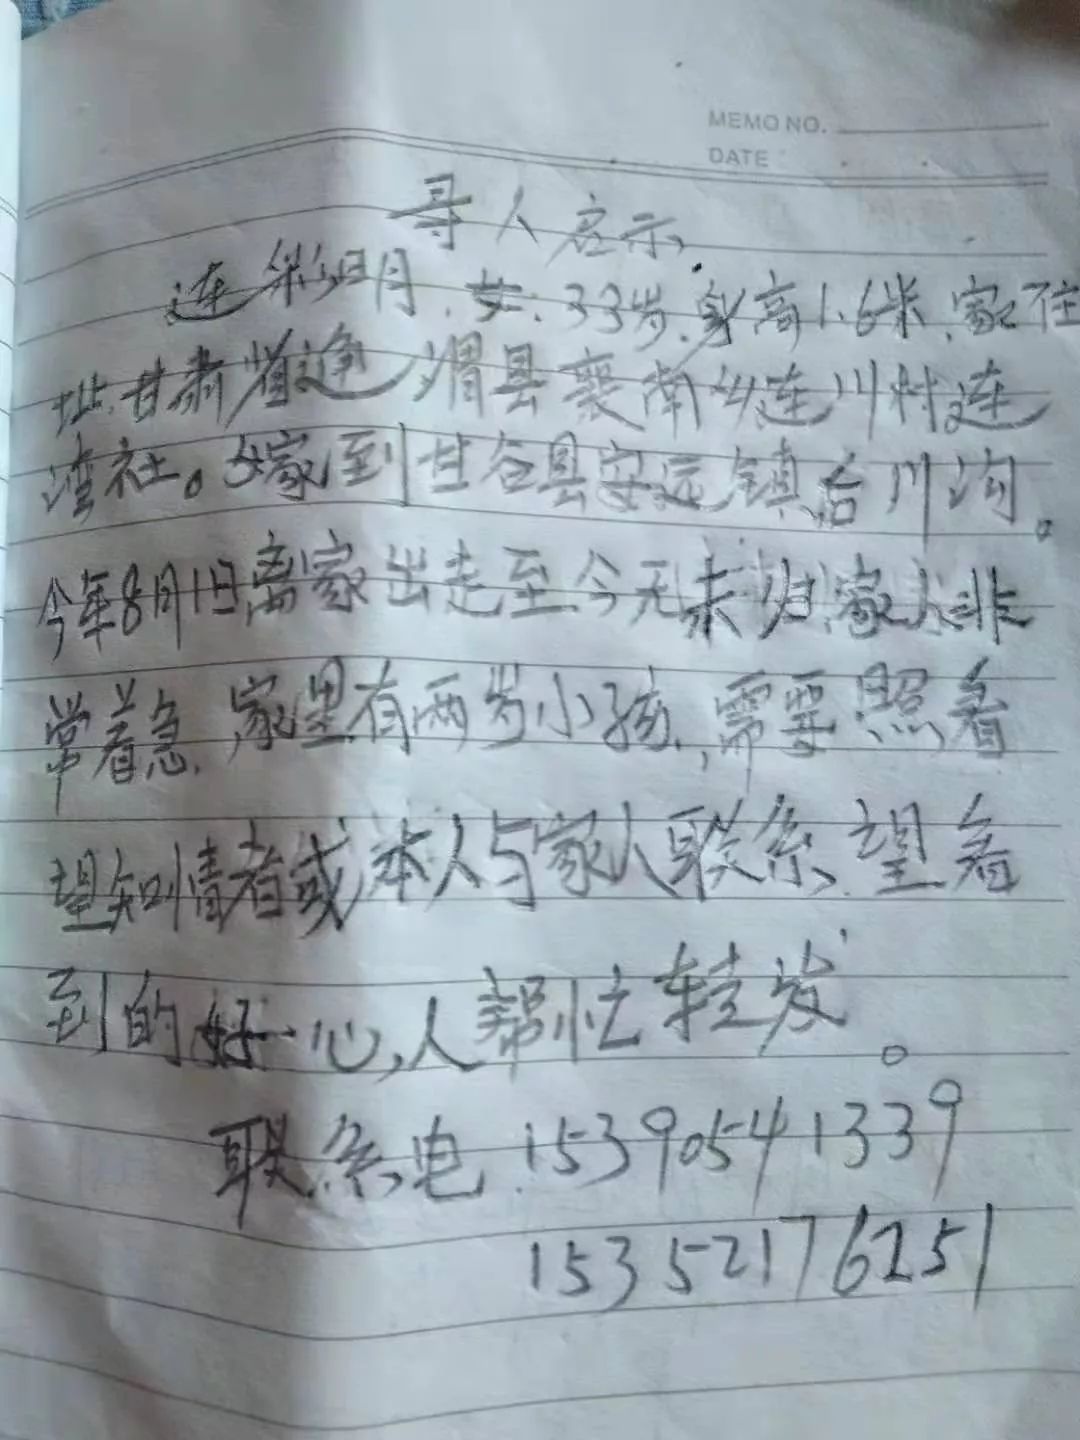 MEMO NO.
DATE
寻人启示
连彩明月.女.33岁.身高1.6米.家住
址.甘肃省通渭县襄南乡连川村连
湾社。嫁到甘谷县安远镇台川沟。
今年8月1日离家出走至今无未归,家人非
常着急.家里有两岁小孩.,需要照看
望知情者或本人与家人联系.望看
到的好心人帮忙转发。
联系电.15390541339
15352176251